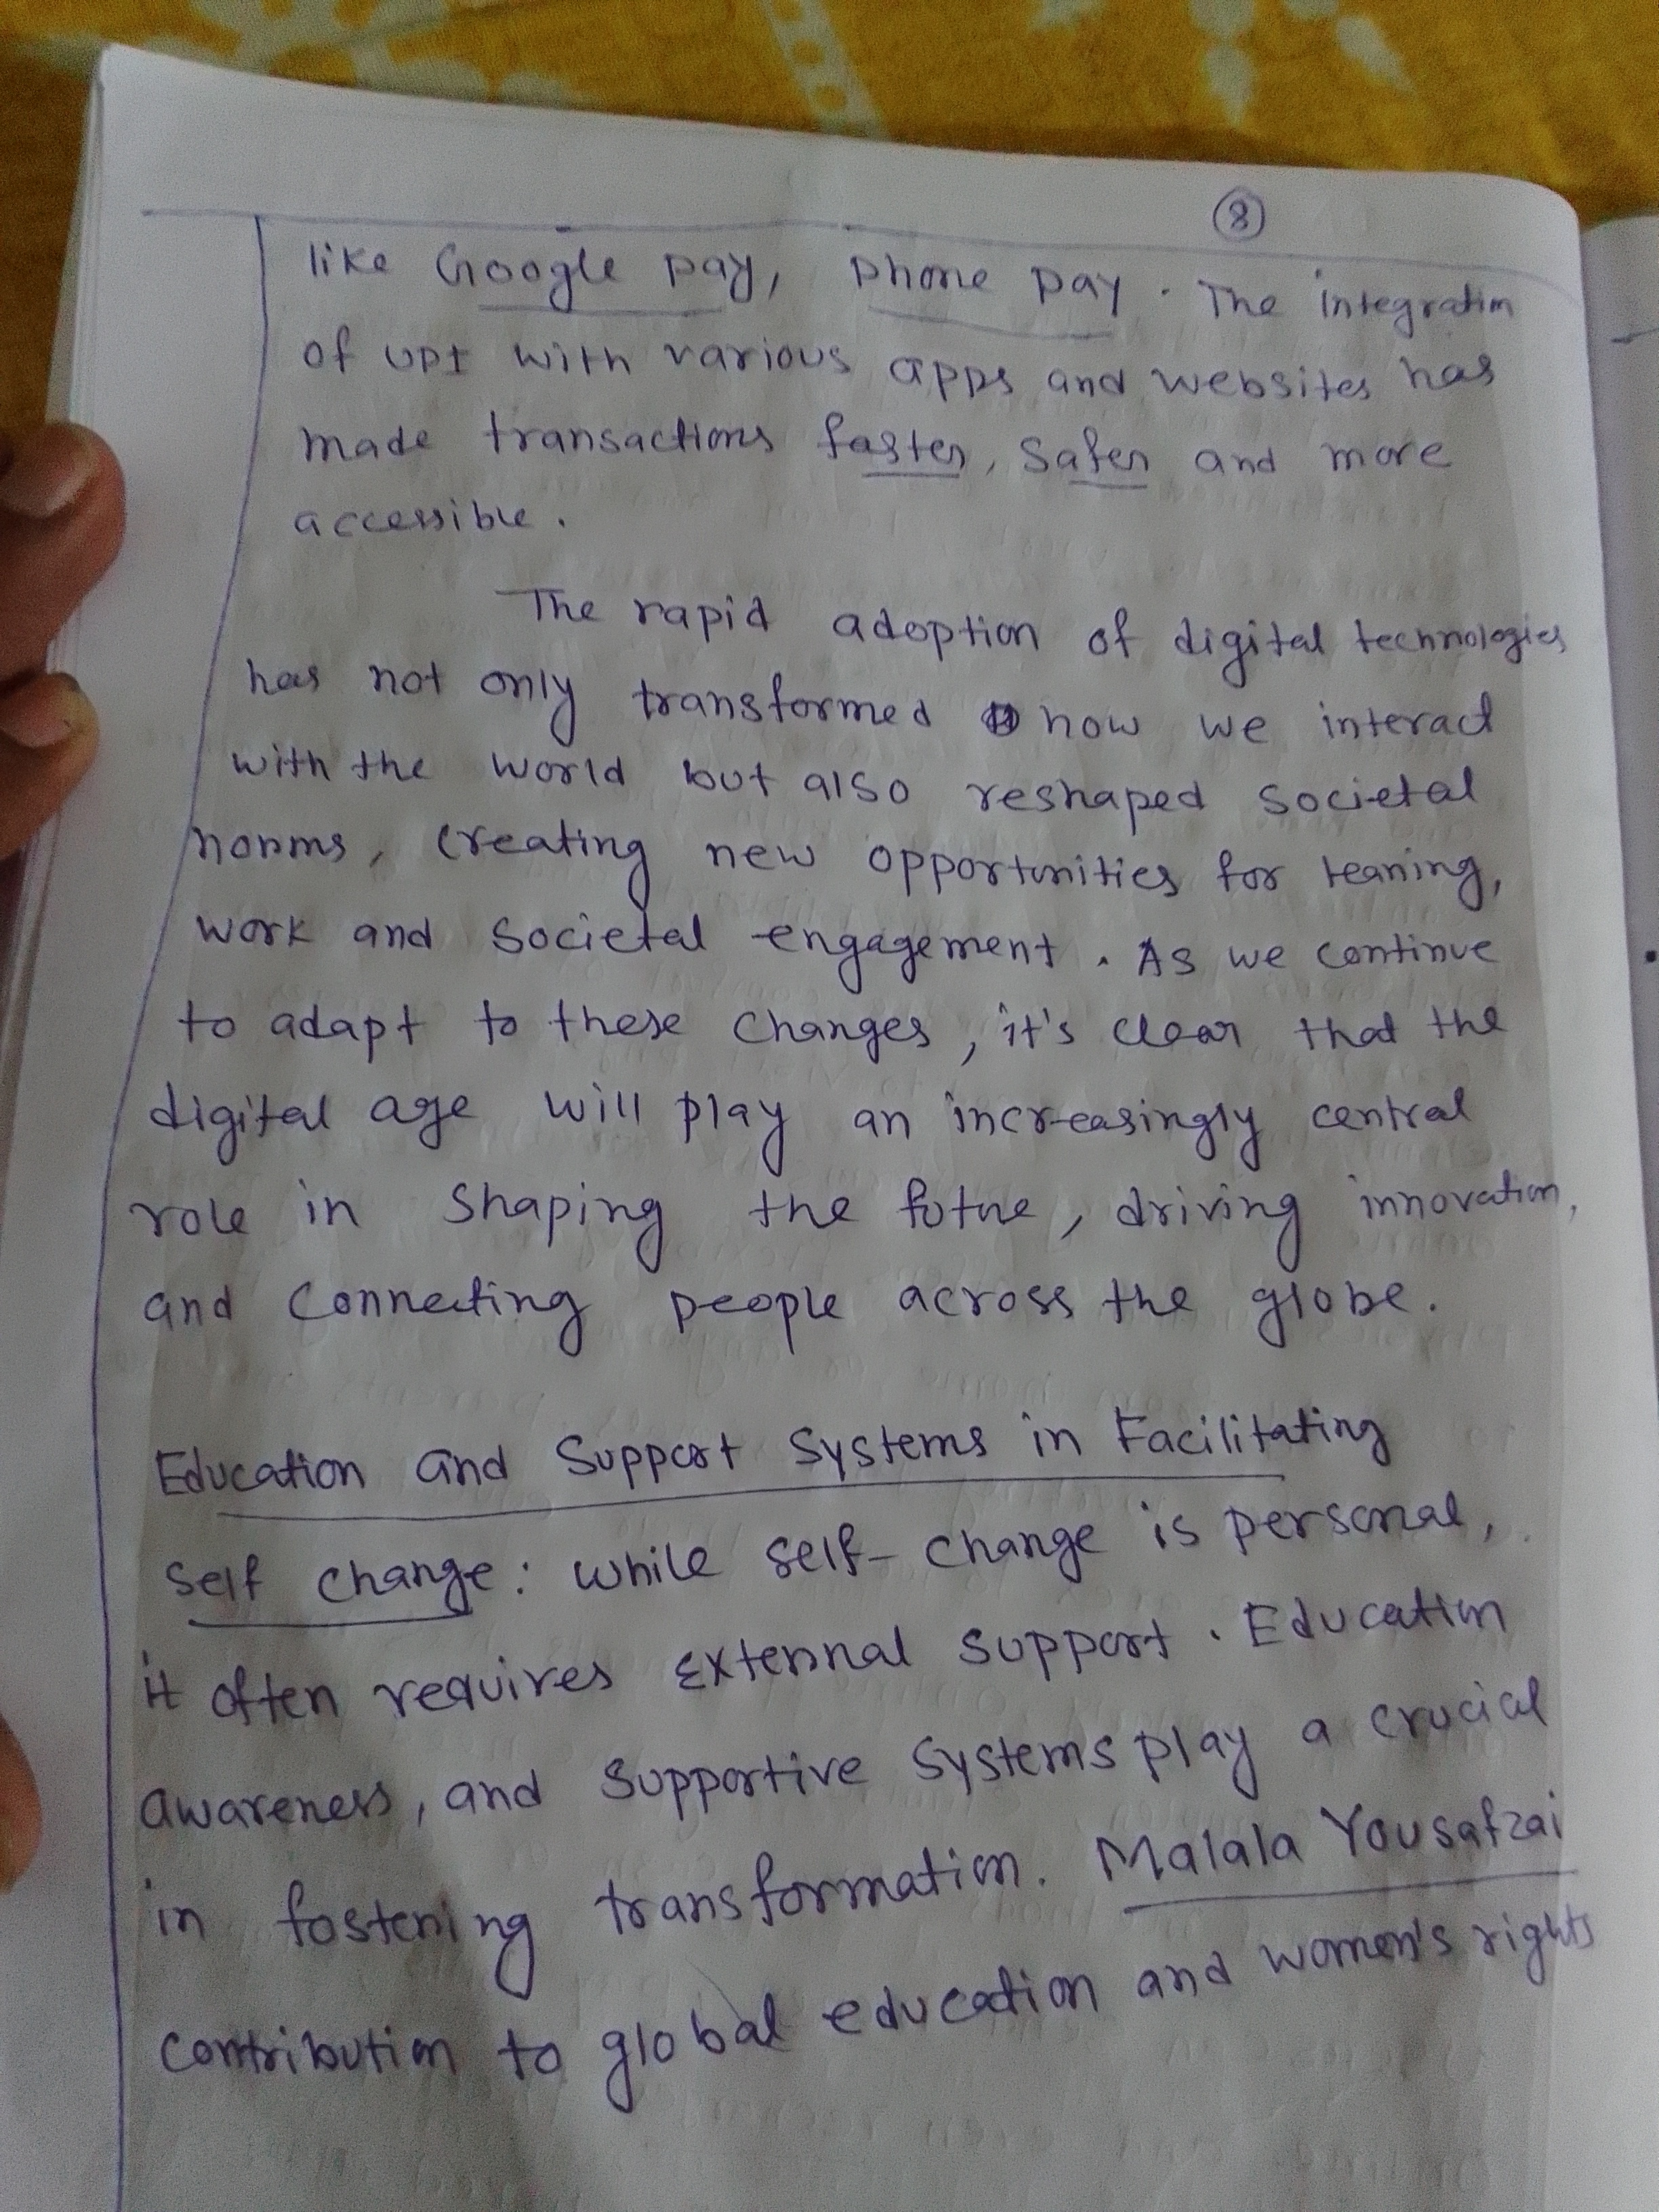 8
like Google pay, phone pay. The integration
of UPI with various apps and websites has
made transactions faster, safer and more
accessible.
The rapid adoption of digital technologies
has not only transformed how we interact
with the world but also reshaped societal
norms, creating new opportunities for leaning,
work and societal engagement. As we continue
to adapt to these changes, it's clear that the
digital age will play an increasingly central
role in shaping the future, driving innovation,
and connecting people across the globe.
Education and Support Systems in Facilitating
Self change: while self-change is personal,
it often requires external support. Education
awareness, and supportive systems play a crucial
in fostering transformation. Malala Yousafzai
contribution to global education and women's rights